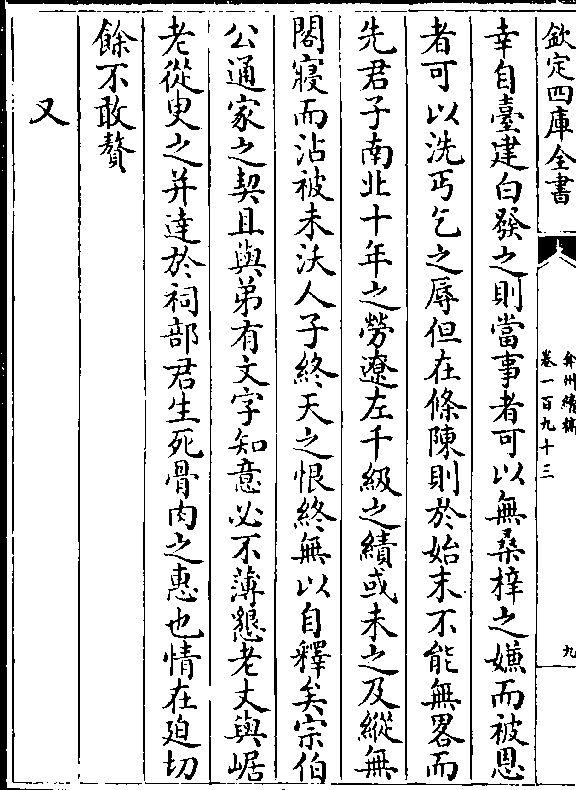 欽定四庫全書
弇州續稿
卷一百九十三
九
幸自臺建白發之則當事者可以無桑梓之嫌而被恩
者可以洗丐乞之辱但在條陳則於始末不能無畧而
先君子南北十年之勞遼左千級之績或未之及縱無
閣寢而沾被未沃人子終天之恨終無以自釋矣宗伯
公通家之契且與弟有文字知意必不薄懇老丈與崌
老從臾之并達於祠部君生死骨肉之惠也情在廹切
餘不敢贅
又